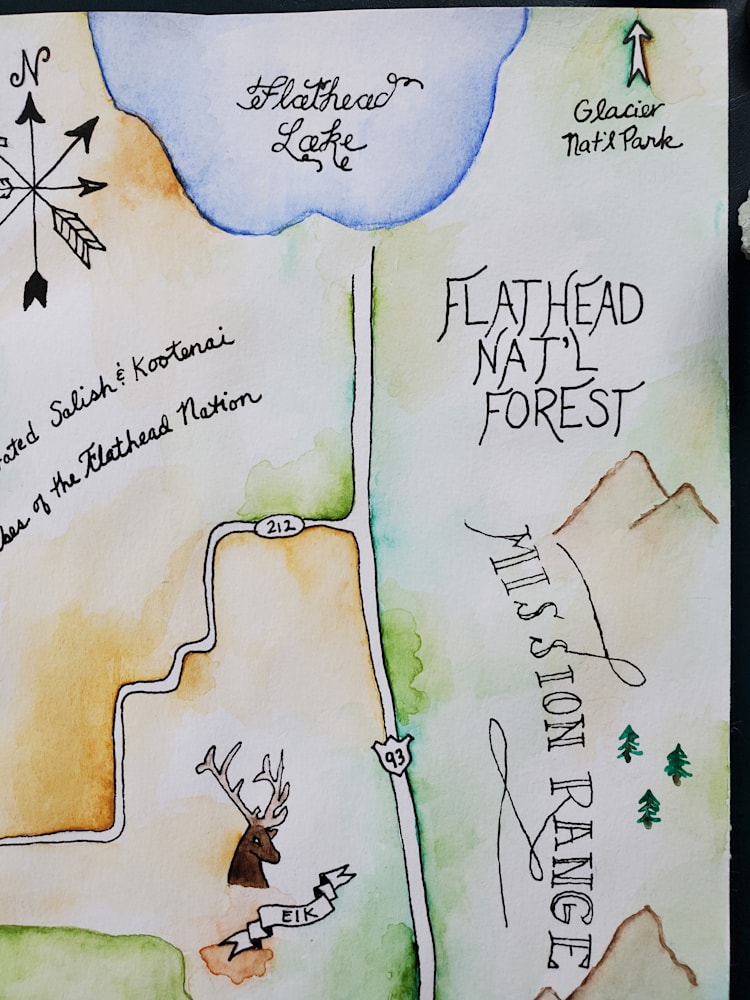 N
Flathead
Lake
Glacier
Nat'l Park
FLATHEAD
NAT'L
FOREST
Salish & Kootenai
of the Flathead Nation
212
MISSION RANGE
93
ElK